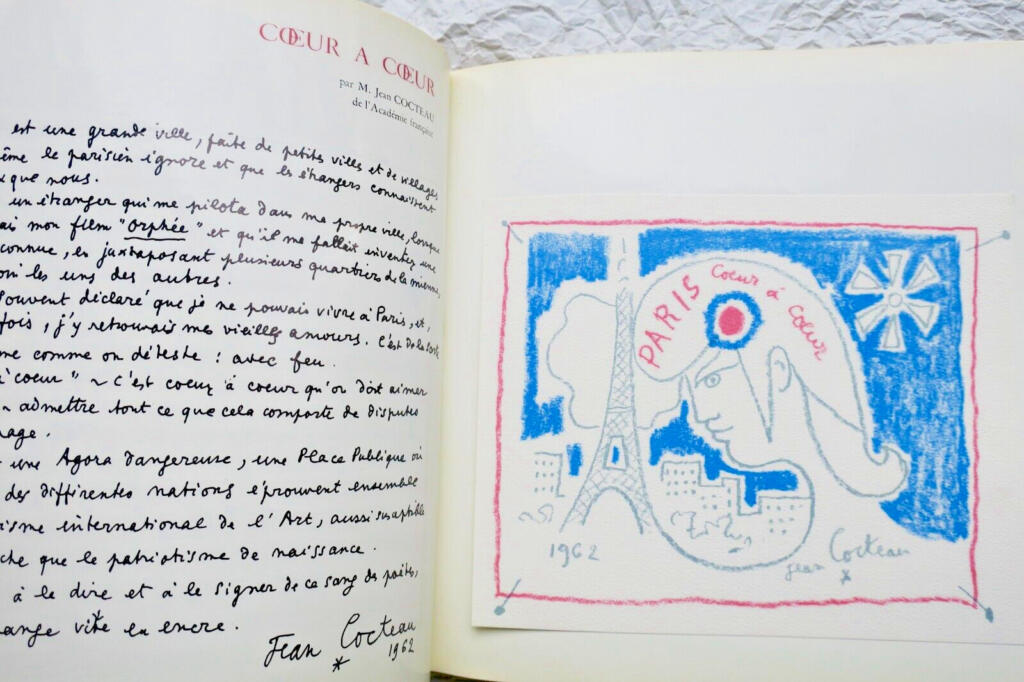 CŒUR A CŒUR
par M. Jean COCTEAU
de l'Académie française
est une grande ville, faite de petites villes et de villages
ême le parisien ignore et que les étrangers connaissent
x que nous.
un étranger qui me pilota dans ma propre ville, lorsque
ais mon film "Orphée" et qu'il me fallait inventer une
connue, en juxtaposant plusieurs quartiers de la mienne,
oin les uns des autres.
souvent déclaré que je ne pouvais vivre à Paris, et,
fois, j'y retrouvais mes vieilles amours. C'est de la sorte
me comme on déteste : avec feu.
à coeur" ~ C'est coeur à coeur qu'on doit aimer
admettre tout ce que cela comporte de disputes
nage.
une Agora dangereuse, une Place Publique où
des différentes nations éprouvent ensemble
isme international de l'Art, aussi susceptible
che que le patriotisme de naissance.
à le dire et à le signer de ce sang des poètes,
ange vite en encre.
Jean Cocteau
* 1962
PARIS Coeur à coeur
1962
Jean Cocteau
*